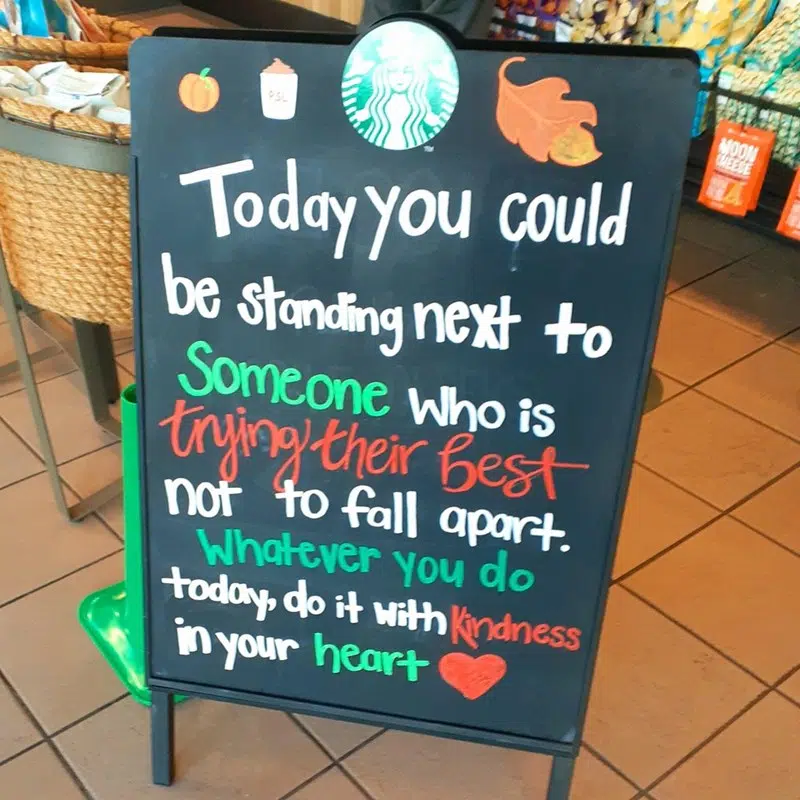 PSL
TM
Today you could
be standing next to
Someone who is
trying their best
not to fall apart.
Whatever you do
today, do it with Kindness
in your heart
MOON
CHEESE